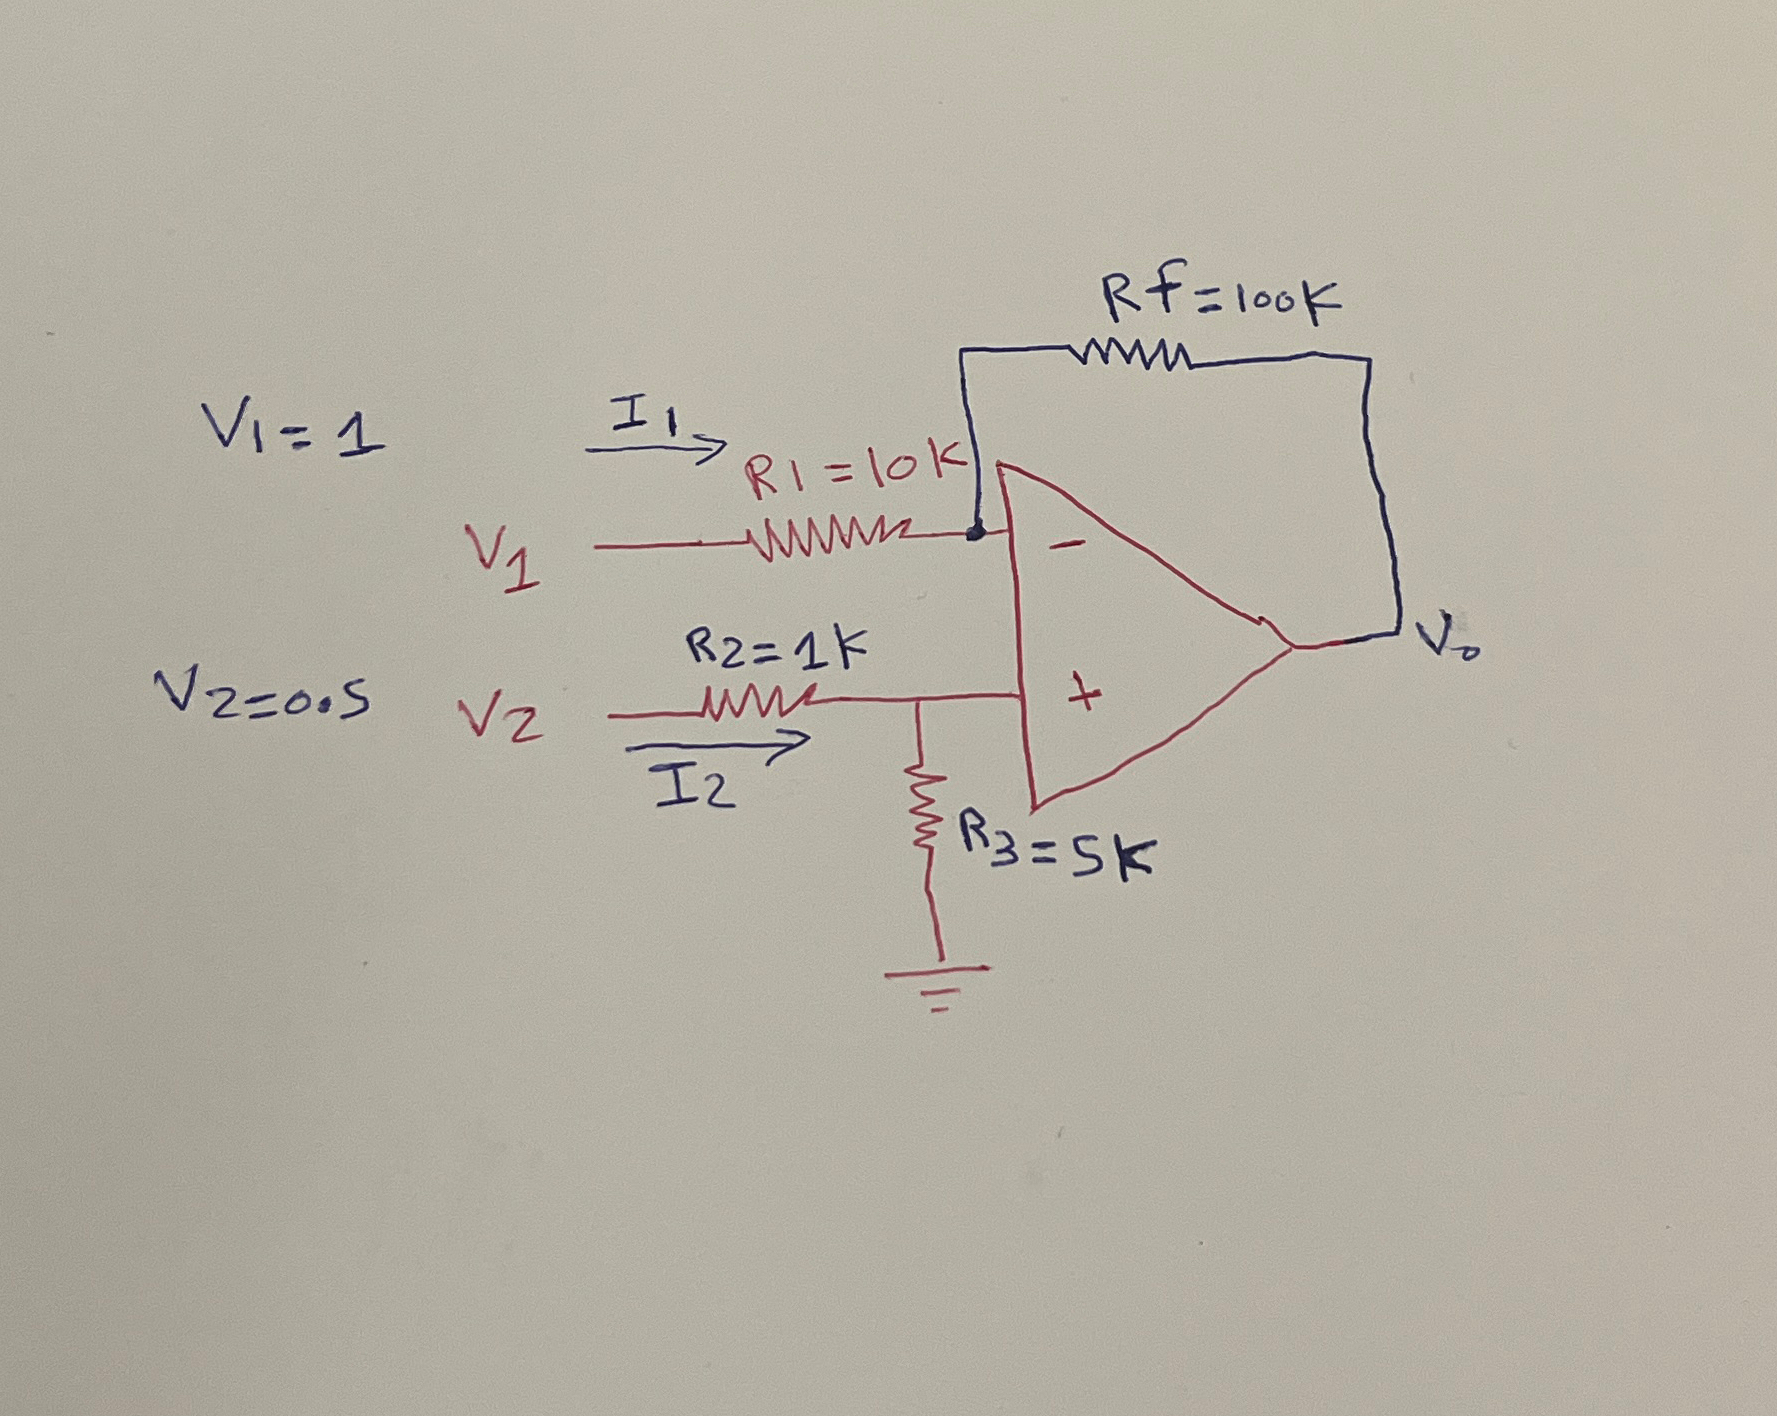 Rf=100K
V1=1
I1
R1=10K
V1
-
R2=1K
V0
V2=0.5
V2
+
I2
R3=5K